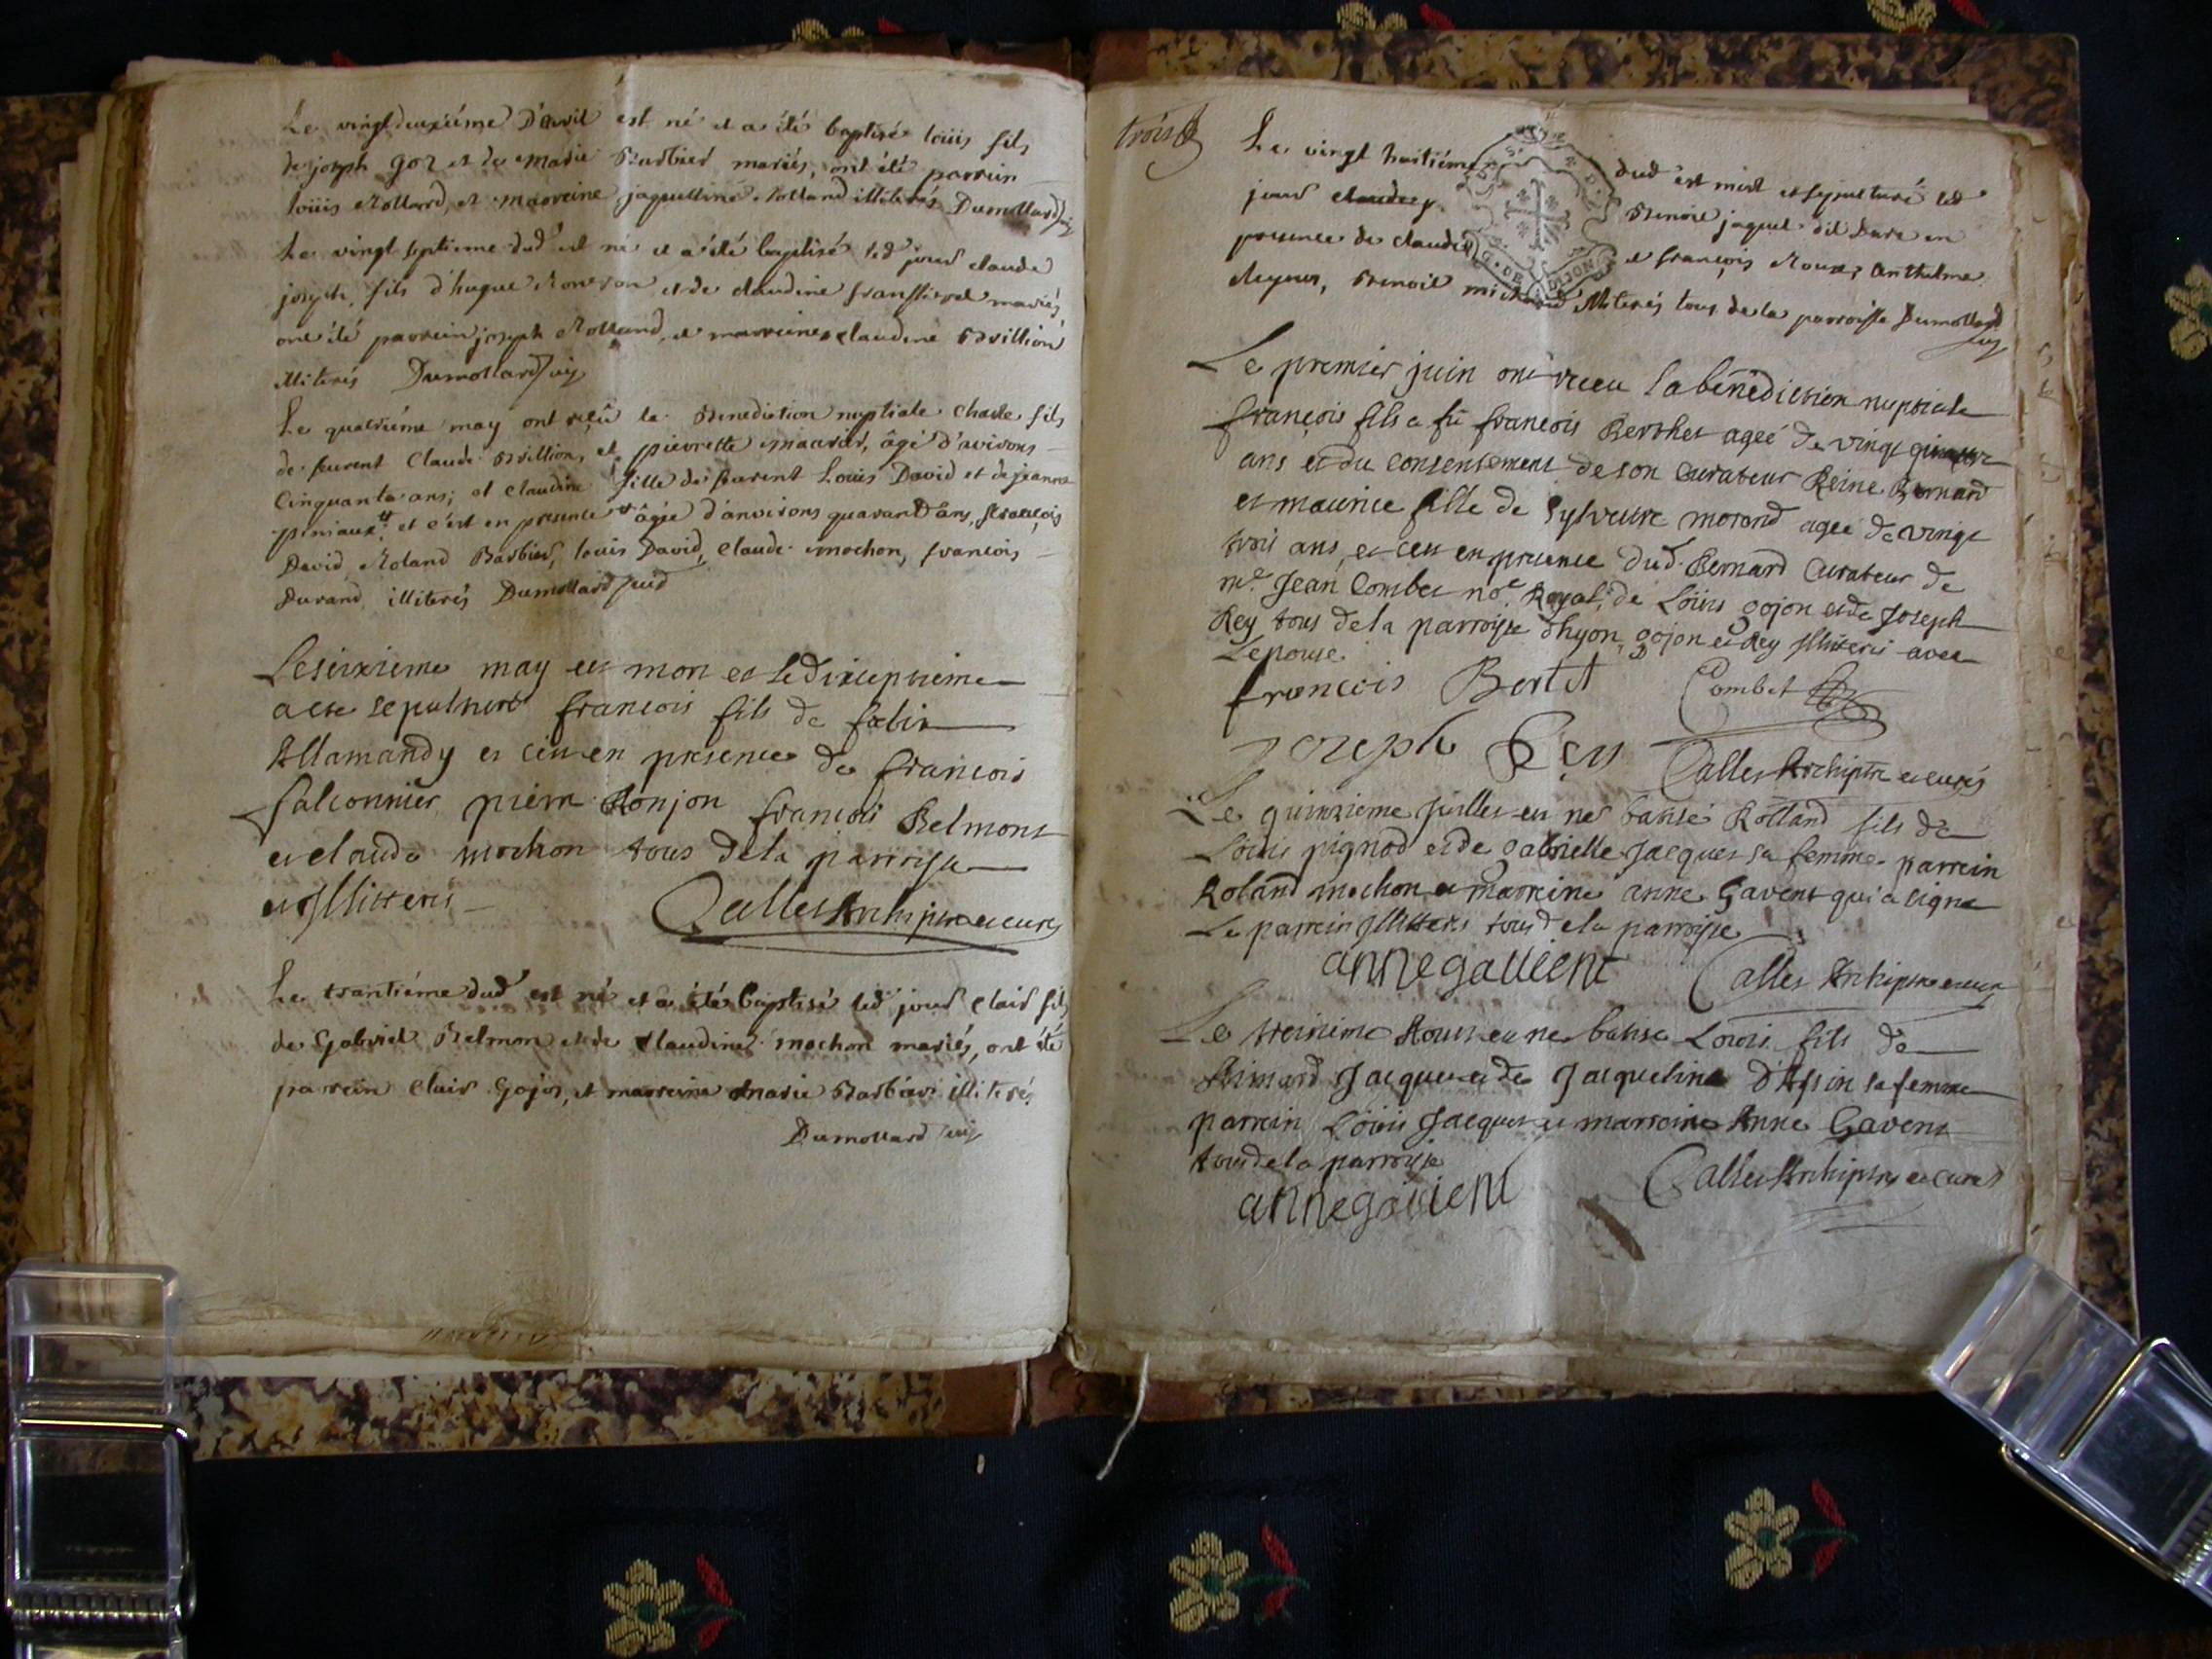 Le vingtdeuxiéme D'avril est né et a été baptisé loüis fils
de joseph goz et de marie Barbier mariés, ont été parrein
loüis Rolland, et marreine jaquelline Rolland illiterés Dumollard vic
Le vingt septieme dud est né et a été baptisé led jour claude
joseph, fils d'hugue et de claudine mariés,
ont été parrein joseph Rolland, et marreine claudine Brillion
illiterés Dumollard vic
Le quatriéme may ont reçû la Benediction nuptiale Charle fils
de furent Claude Brillion, et pierrette âgé d'avirons
Cinquante ans; et Claudine fille de furent Louis David et de jeanne
et c'est en presence âgée d'anvirons quarant ans, françois
David, Roland Barbier, louis David, Claude mochon, francois
Durand illiterés Dumollard
Le seizieme may est mort et le dixseptieme
a este sepulturé francois fils de
Allamandy et c'est en présence de francois
falconnier, pierre Ronjon francois Belmont
et claude mochon tous de la parroisse
et Illitterés
Calles Archiptre et curé
Le trantiéme dud est né et a été baptisé led jour Clair fils
de Gabriel Belmon et de Claudine mochon mariés, ont été
parrein Clair Gojon, et marreine marie Barbier illiterés
Dumollard vic
trois
Le vingt huitiéme dud est mort et sepulturé led
jour Benoit jaquet dit Dure en
presence de claude et françois Roux, anthelme
Reynier, Benoit michoud illiterés tous de la parroisse Dumollard
vic
Le premier juin ont receu la bénédiction nuptiale
françois fils a fû francois Berthet ageé de vingt
ans et du consentement de son Curateur Reine Bernard
et maurice fille de Sylvestre morand ageé de vingt
trois ans, et c'est en presence dud. Bernard Curateur de
me Jean Combet nore Royal, de Loüis gojon et de Joseph
Rey tous de la parroisse dhyon, gojon et Rey Illiterés avec
Lepouse
francois Bertet Combet
Joseph Rey Calles Archiptre et curés
Le quinzieme juillet est né batisé Rolland fils de
Loüis pignod et de gabrielle Jacques sa femme. parrein
Roland mochon et marreine anne Gavent qui a signe
Le parrein Illitterés tous de la parroisse
anne gavient Calles Archiptre et curé
Le treisieme Aoust est né batise Loüis fils de
Aimard Jacques et de Jacqueline d'Assin sa femme
parrein Loüis Jacques et marreine Anne Gavent
tous de la parroisse
anne gavient Calles Archiptre et curé